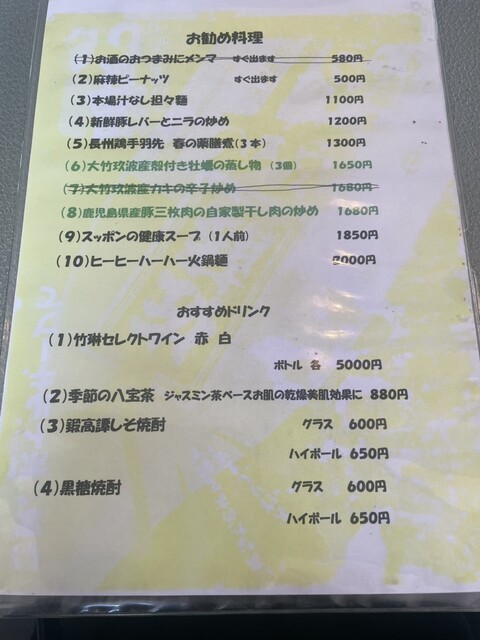 お勧め料理
(1)お酒のおつまみにメンマ すぐ出ます 580円
(2)麻辣ピーナッツ すぐ出ます 500円
(3)本場汁なし担々麺 1100円
(4)新鮮豚レバーとニラの炒め 1200円
(5)長州鶏手羽先 春の薬膳煮(3本) 1300円
(6)大竹玖波産殻付き牡蠣の蒸し物 (3個) 1650円
(7)大竹玖波産カキの辛子炒め 1680円
(8)鹿児島県産豚三枚肉の自家製干し肉の炒め 1680円
(9)スッポンの健康スープ (1人前) 1850円
(10)ヒーヒーハーハー火鍋麺 2000円
おすすめドリンク
(1)竹琳セレクトワイン 赤 白
ボトル 各 5000円
(2)季節の八宝茶 ジャスミン茶ベースお肌の乾燥美肌効果に 880円
(3)鍛高譚しそ焼酎 グラス 600円
ハイボール 650円
(4)黒糖焼酎 グラス 600円
ハイボール 650円